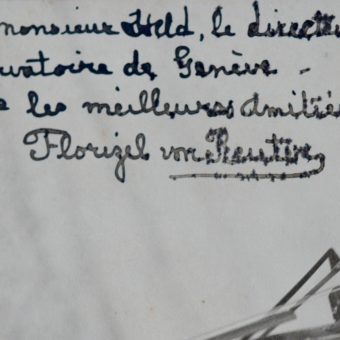 monsieur Held, le directe
rvatoire de Genève -
les meilleurs amitié
Florizel von Reuter